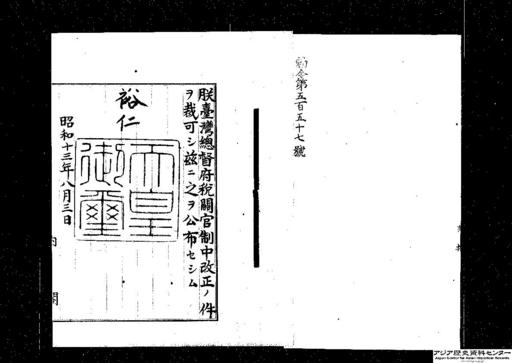 勅令第五百五十七號
朕臺灣總督府稅關官制中改正ノ件
ヲ裁可シ茲ニ之ヲ公布セシム
裕仁
天皇
御璽
昭和十三年八月三日
内閣
アジア歴史資料センター
Japan Center for Asian Historical Records